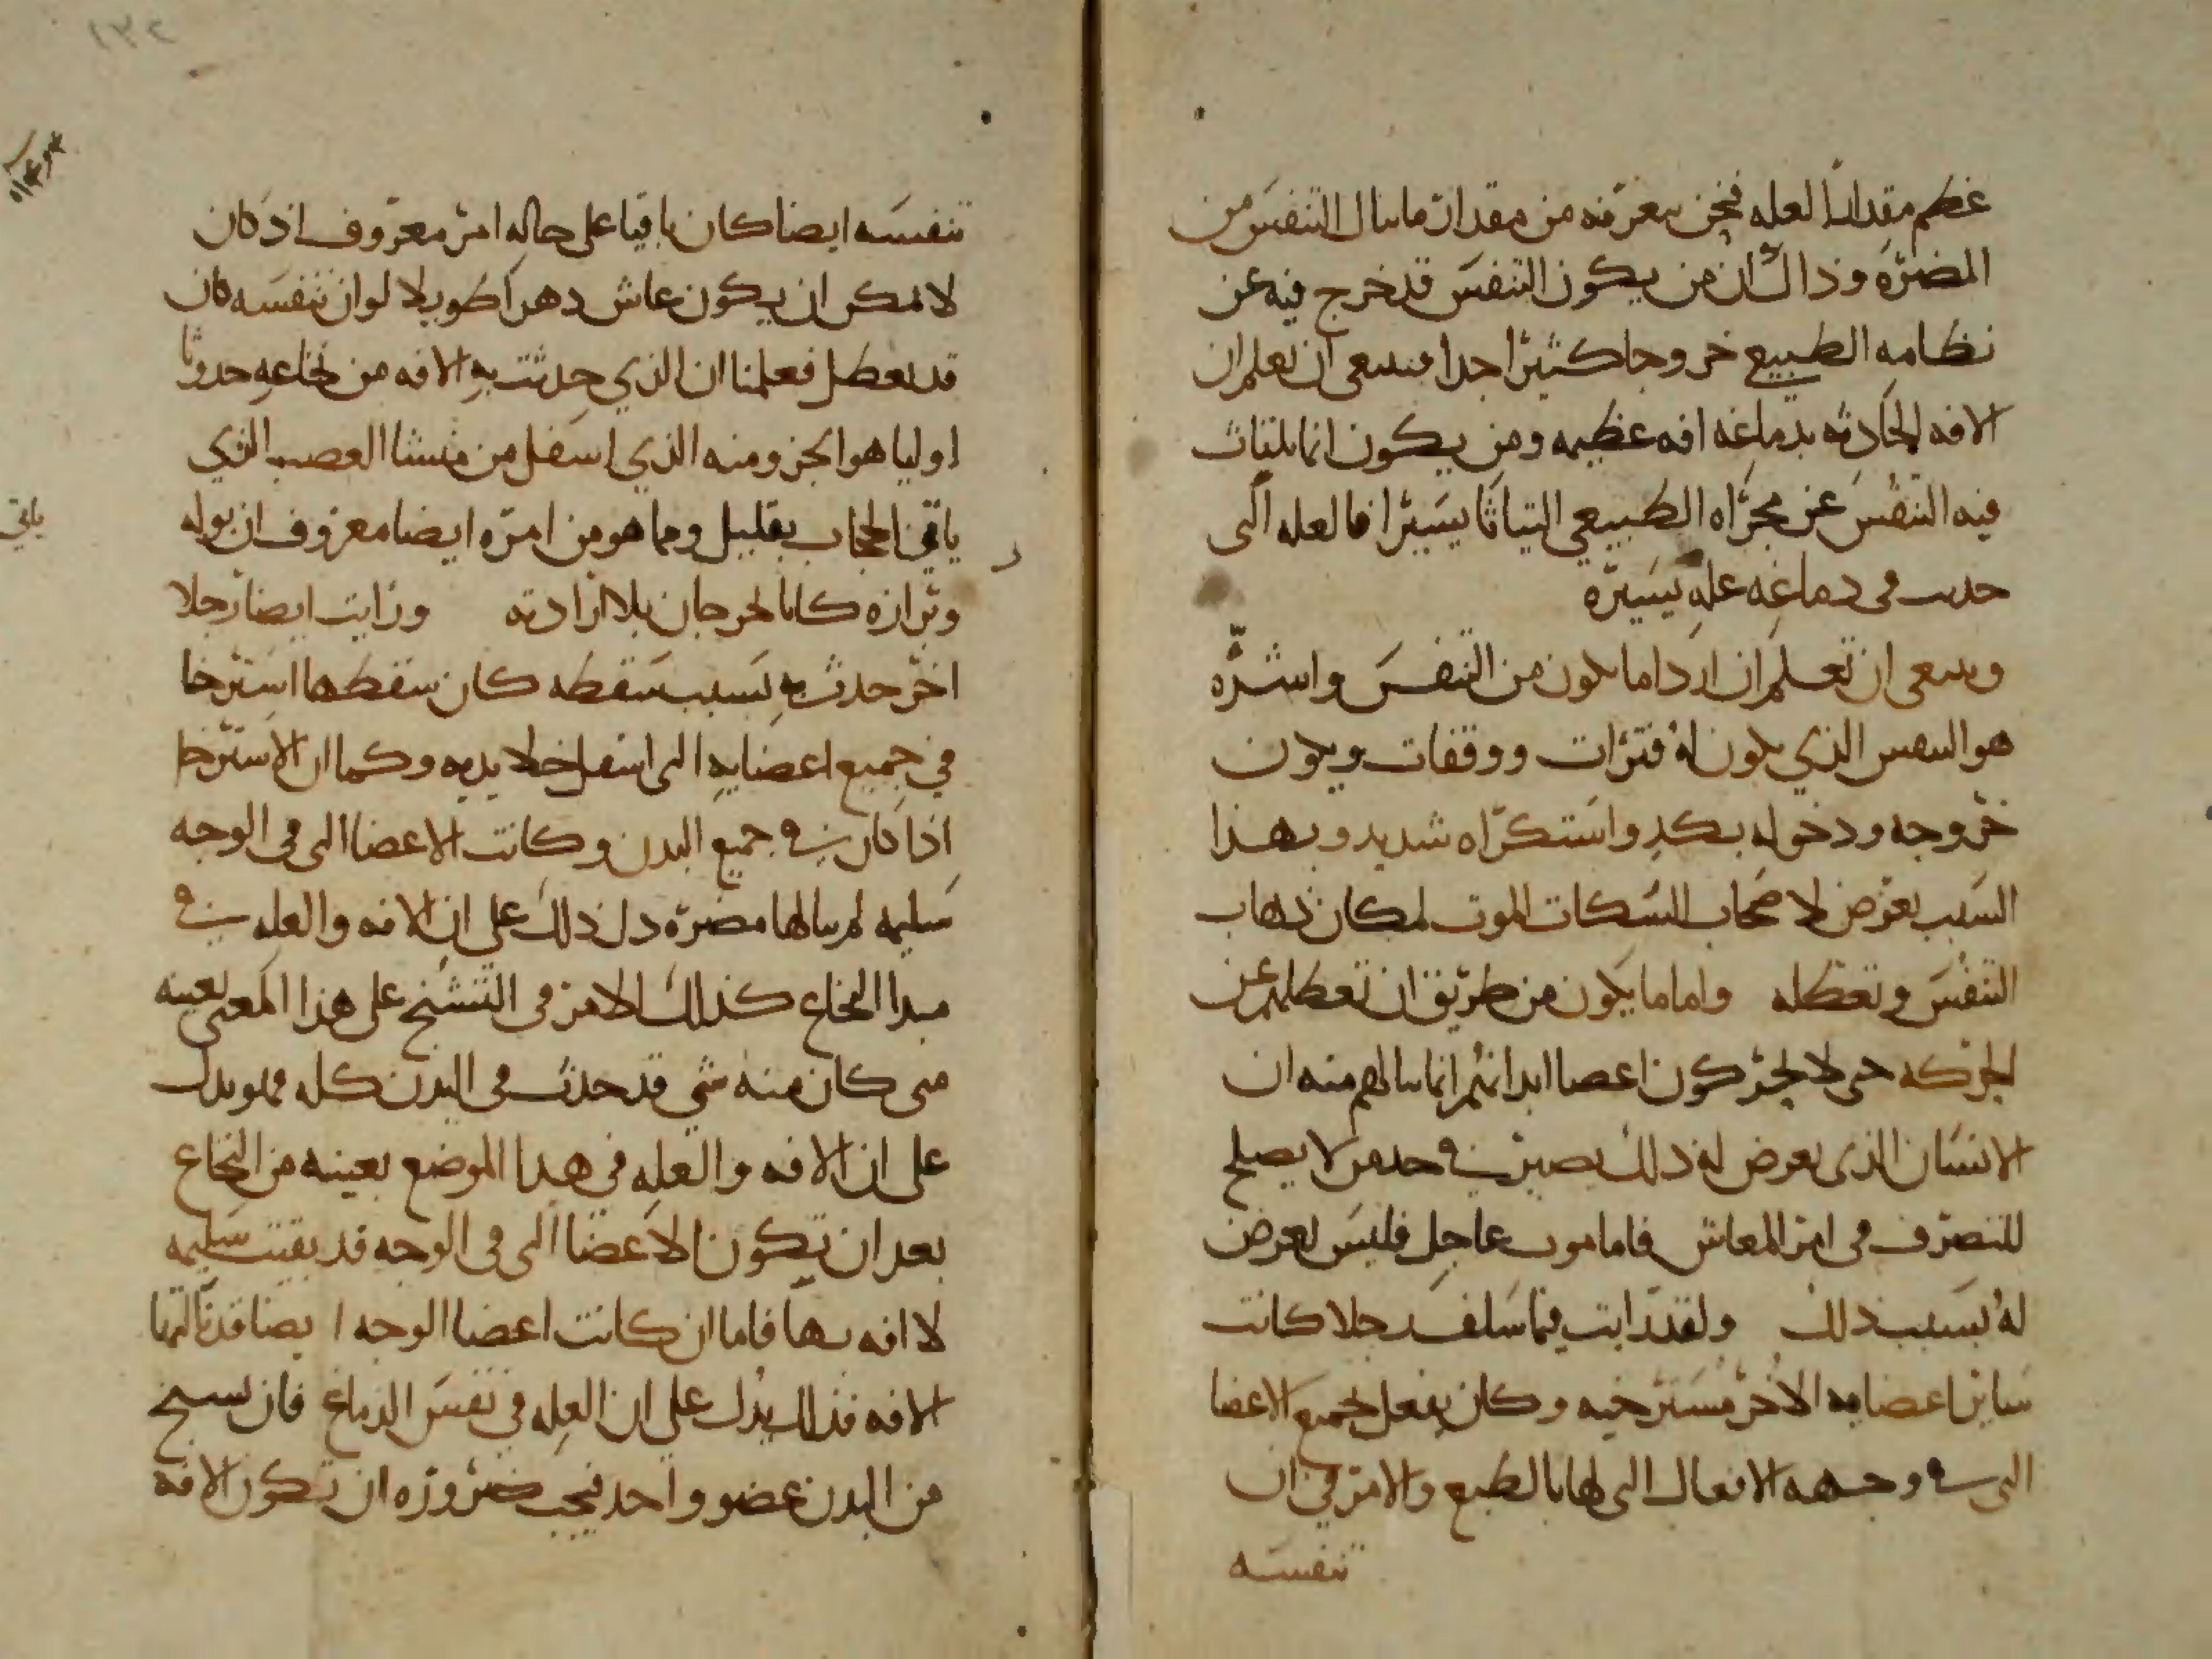 عظم مقدار العله فنحن نعرفه من مقدار ما ينال التنفس من
المضره وذاك ان من يكون التنفس قد خرج فيه عن
نظامه الطبيعي خروجا كثيرا جدا فينبغي ان نعلم ان
الافه الحادثه بدماغه افه عظيمه ومن يكون انما يلتاث
فيه التنفس عن مجراه الطبيعي التياثا يسيرا فالعله التي
حدثت في دماغه عله يسيره
وينبغي ان تعلم ان اردا ما يكون من التنفس واشره
هو التنفس الذي يكون له فترات ووقفات ويكون
خروجه ودخوله بكد واستكراه شديد وبهذا
السبب يعرض لاصحاب السكات الموت لمكان ذهاب
التنفس وتعطله واما ما يكون من طريق ان تعطلهم عن
الحركه حتى لا تحركون اعضا ابدانهم انما ينالهم منه ان
الانسان الذي يعرض له ذلك يصير في حد من لا يصلح
للتصرف في امر المعاش فاما موت عاجل فليس يعرض
له بسبب ذلك ولقد رايت فيما سلف رجلا كانت
ساير اعضايه الاخر مسترخيه وكان يفعل بجميع الاعضا
التي في وجهه الافعال التي لها بالطبع والامر في ان
تنفسه
تنفسه ايضا كان باقيا على حاله امر معروف اذ كان
لا يمكن ان يكون عاش دهرا طويلا لو ان تنفسه كان
قد تعطل فعلمنا ان الذي حدثت به الافه من نخاعه حدوثا
اوليا هو الجزو منه الذي اسفل من منشا العصب الذي
ياتي الحجاب بقليل ومما هو من امره ايضا معروف ان بوله
وبرازه كانا يخرجان بلا ارادته ورايت ايضا رجلا
اخر حدث به بسبب سقطه كان سقطها استرخا
في جميع اعضايه التي اسفل خلا يديه وكما ان الاسترخا
اذا كان في جميع البدن وكانت الاعضا التي في الوجه
سليمه لم ينالها مضره دل ذلك على ان الافه والعله في
مبدا النخاع كذلك الامر في التشنج على هذا المعنى بعينه
متى كان منه شي قد حدث في البدن كله فهو يدل
على ان الافه والعله في هذا الموضع بعينه من النخاع
بعد ان تكون الاعضا التي في الوجه قد بقيت سليمه
لا افه بها فاما ان كانت اعضا الوجه ايضا قد نالتها
الافه فذلك يدل على ان العله في نفس الدماغ فان تشنج
من البدن عضو واحد فيجب ضروره ان تكون الافه
ياتي